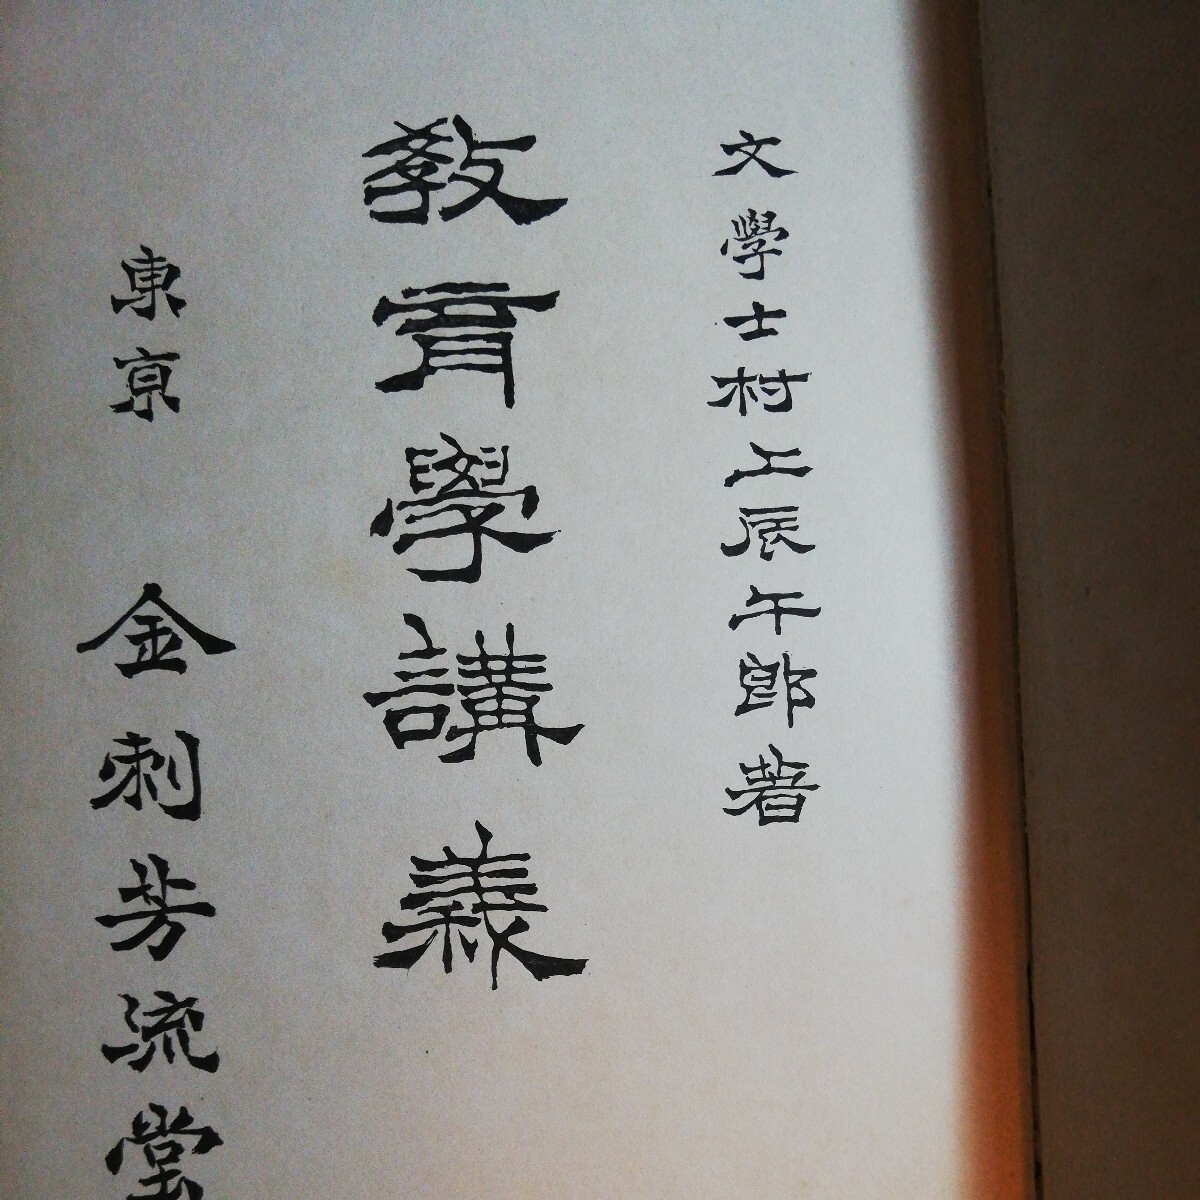 文學士村上辰午郎著
教育學講義
東京 金刺芳流堂